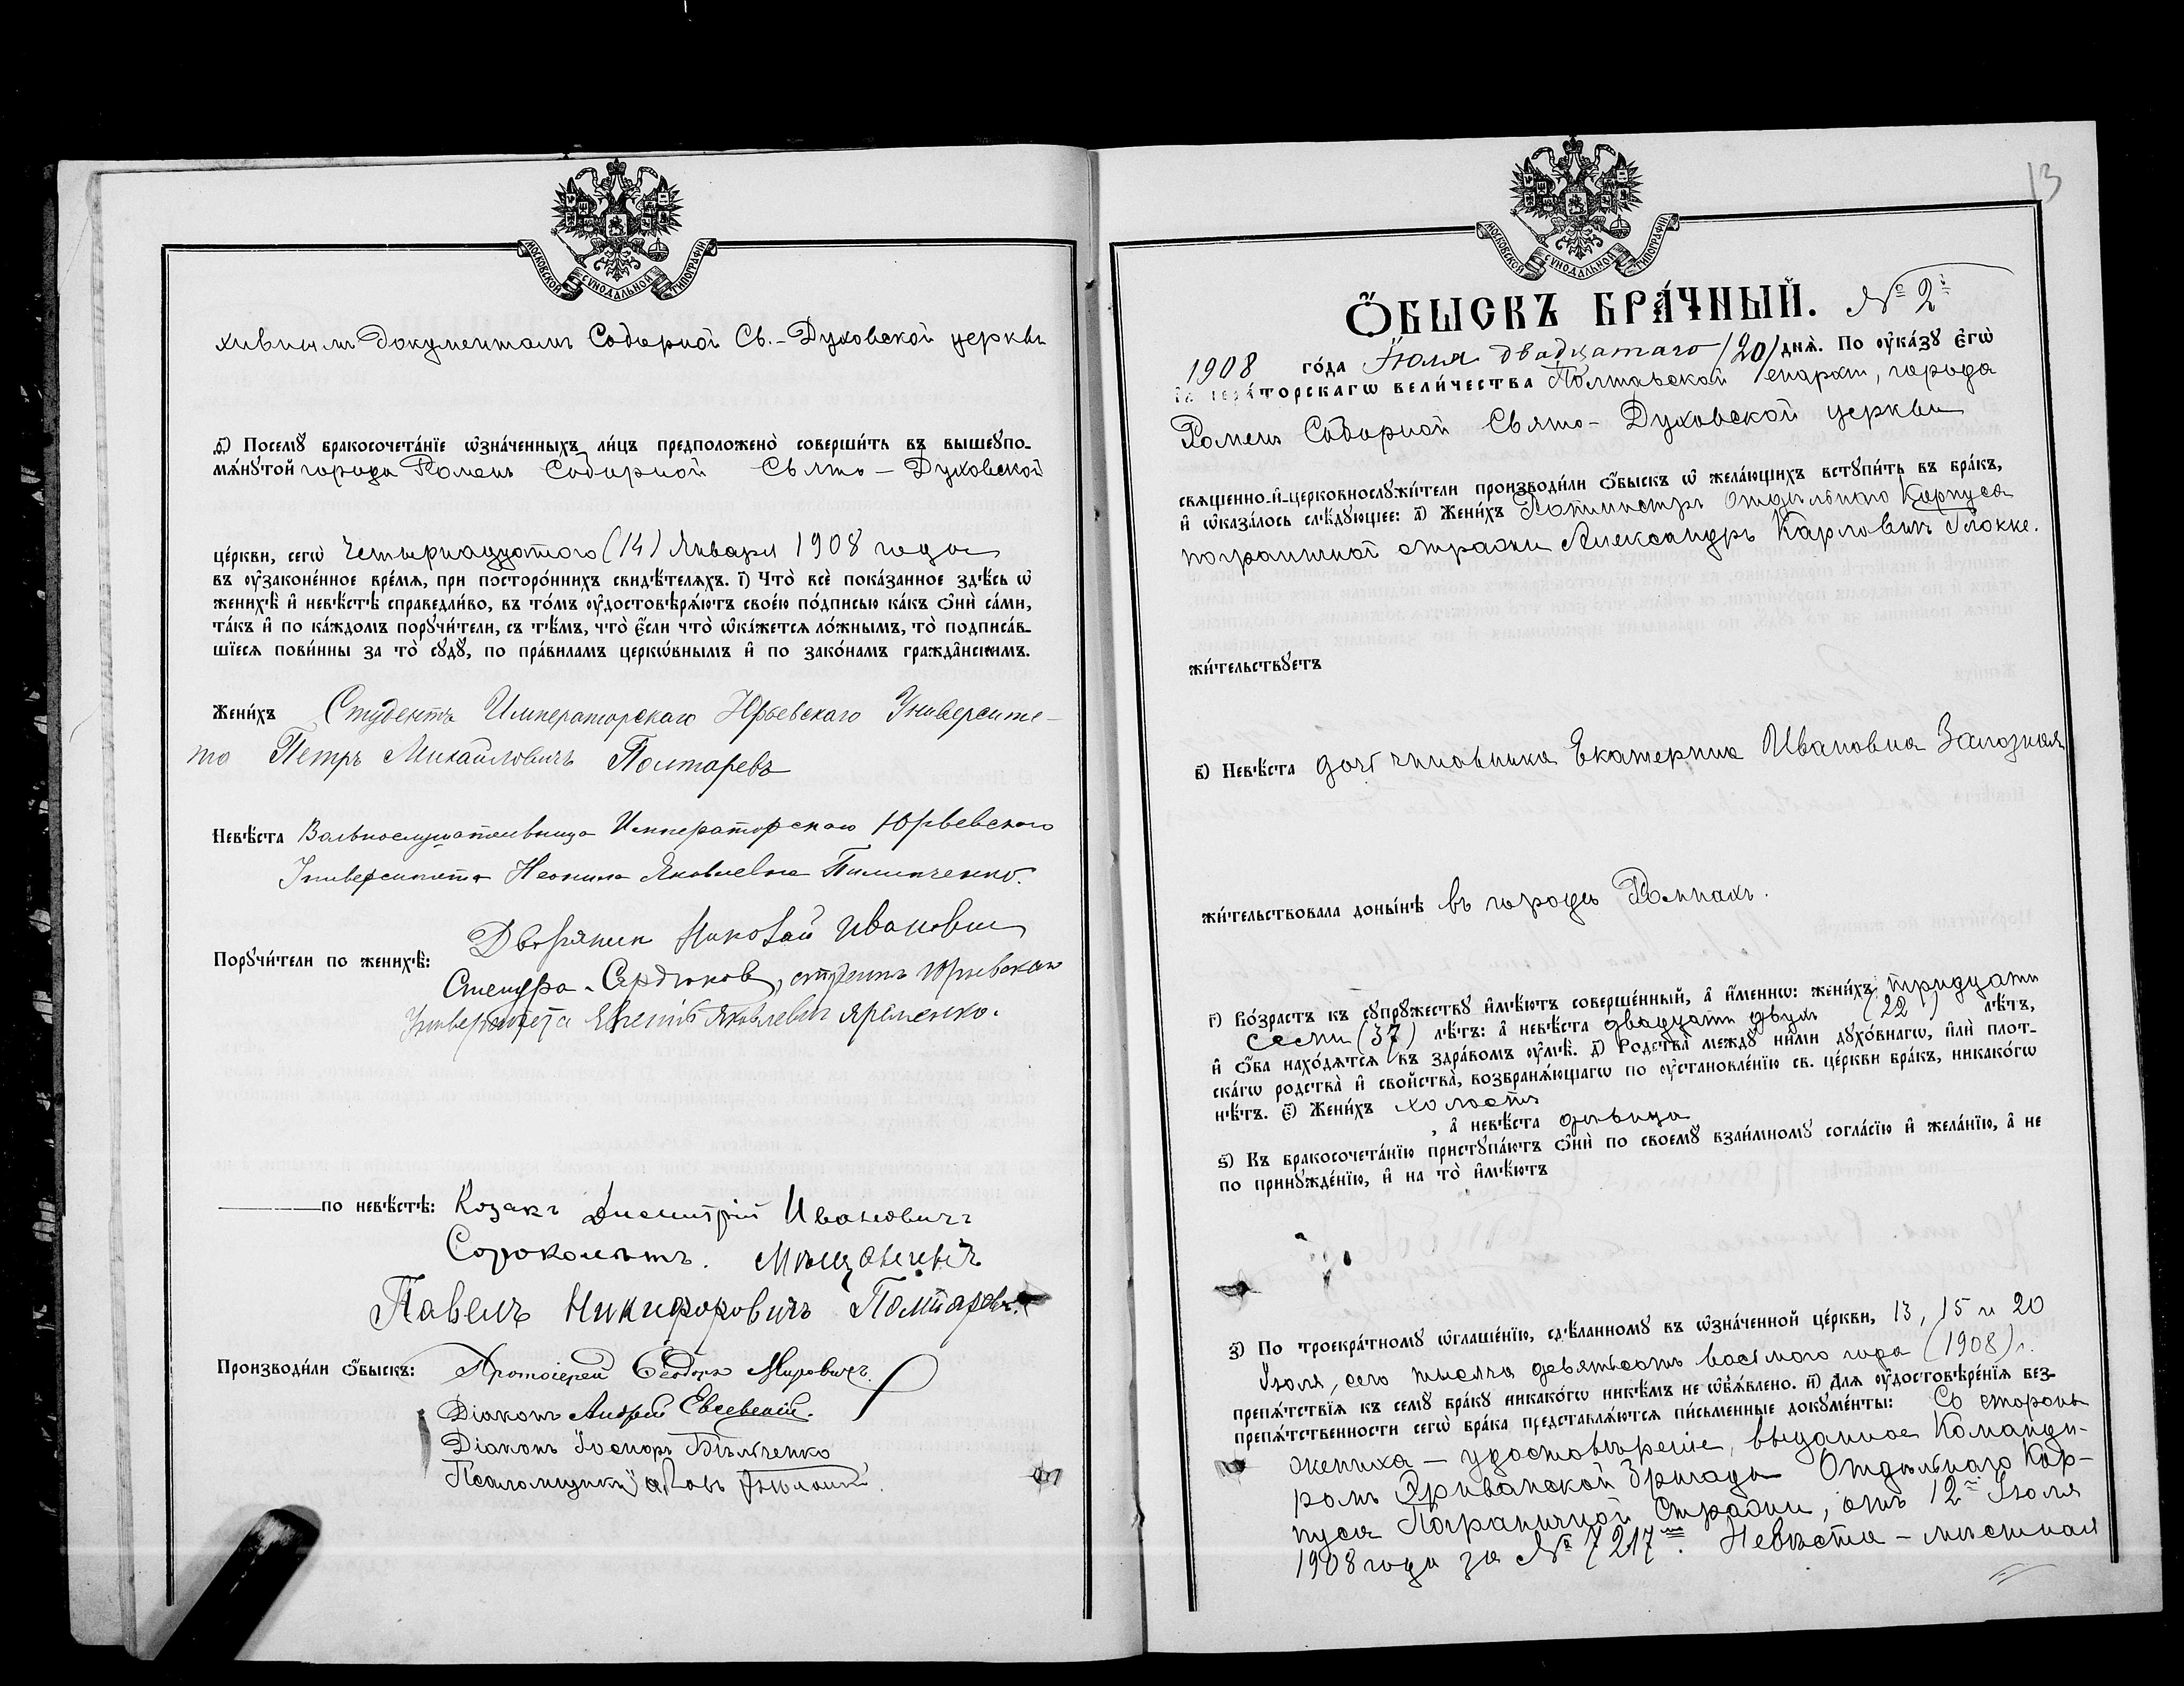 МОСКОВСКОЙ СУНОДАЛЬНОЙ ТИПОГРАФІИ
хивнымъ документамъ Соборной Св.-Духовской церкви
д҃і) Посемꙋ̀ бракосочета́нїе ѡ҆зна́ченныхъ ли́цъ предположено̀ соверши́ть въ вышеꙋпо-
мѧ́нꙋтой города Роменъ Соборной Свято-Духовской
це́ркви, сегѡ̀ Четырнадцатого (14) Января 1908 года
въ ᲂу҆зако́ненное вре́мѧ, при посторо́ннихъ свидѣ́телѧхъ. і҃) Что̀ всѐ пока́занное здѣ́сь ѡ҆
женихѣ̀ и҆ невѣ́стѣ справедли́во, въ то́мъ ᲂу҆достовѣрѧ́ютъ свое́ю по́дписью ка́къ ѻ҆нѝ са́ми,
та́къ и҆ по ка́ждомъ порꙋчи́тели, съ тѣ́мъ, что̀ є҆́сли что̀ ѡ҆ка́жется ло́жнымъ, то̀ подписа́в-
шїеся пови́нны за то̀ сꙋдꙋ̀, по пра́виламъ церкѡ́внымъ и҆ по зако́намъ гражда̑нскимъ.
Жени́хъ Студентъ Императорскаго Юрьевскаго Университе-
та Петръ Михайловичъ Полторевъ
Невѣ́ста Вальнослушательница Императорскаго Юрьевскаго
Университета Неонила Яковлевна Пилипченко.
Порꙋчи́тели по женихѣ̀: Дворянин Николай Иванович
Сердюков, студентъ Юрьевскаго
Университета Евгений Яковлевич Яременко.
по невѣ́стѣ: Козакъ Димитрій Ивановичъ
Сороколѣтъ. Мѣщанинъ
Павелъ Никифоровичъ Полторевъ.
Производи́ли ѻ҆́быскъ: Протоіерей Ѳеодоръ Мировичъ.
Діаконъ Андрей Евсевскій.
Діаконъ Бѣльченко
Псаломщикъ Яковъ
13
МОСКОВСКОЙ СУНОДАЛЬНОЙ ТИПОГРАФІИ
Ѻ҆́БЫСКЪ БРА́ЧНЫЙ. № 2й
1908 го́да Іюля двадцатаго (20) днѧ̀. По ᲂу҆ка́зꙋ є҆гѡ̀
и҆мпера́торскагѡ вели́чества Полтавской Епархіи, города
Роменъ Соборной Свято-Духовской церкви
свѧщенно-и҆-церковнослꙋжи́тели производи́ли ѻ҆́быскъ ѡ҆ жела́ющихъ встꙋпи́ть въ бра́къ,
и҆ ѡ҆каза́лось слѣ́дꙋющее: а҃) Жени́хъ Ротмистръ Отдѣльнаго Корпуса
пограничной стражи Александръ Карловичъ Глокке.
жи́тельствꙋетъ
в҃) Невѣ́ста дочь чиновника Екатерина Ивановна Залозная
жи́тельствовала доны́нѣ въ городѣ Ромнахъ.
г҃) Во́зрастъ къ сꙋпрꙋ́жествꙋ и҆мѣ́ютъ соверше́нный, а҆ и҆́менно: жени́хъ тридцати
семи (37) лѣ́тъ: а҆ невѣ́ста двадцати двухъ (22) лѣ́тъ,
и҆ ѻ҆́ба нахо́дѧтсѧ въ здра́вомъ ᲂу҆мѣ̀. д҃) Родства̀ междꙋ̀ ни́ми дꙋхо́внагѡ, и҆лѝ плот-
ска́гѡ родства̀ и҆ свойства̀, возбранѧ́ющагѡ по ᲂу҆становле́нїю св. це́ркви бра́къ, никако́гѡ
нѣ́тъ. є҃) Жени́хъ холостъ
, а҆ невѣ́ста дѣвица
ѕ҃) Къ бракосочета́нїю пристꙋпа́ютъ ѻ҆нѝ по своемꙋ̀ взаи́мномꙋ согла́сїю и҆ жела́нїю, а҆ не
по принꙋжде́нїю, и҆ на то̀ и҆мѣ́ютъ
з҃) По троекра́тномꙋ ѡ҆глаше́нїю, сдѣ́ланномꙋ въ ѡ҆зна́ченной це́ркви, 13, 15 и 20
Іюля, сего тысяча девятьсотъ восьмого года (1908) г.
препѧ́тствїѧ къ семꙋ̀ бра́кꙋ никако́гѡ никѣ́мъ не ѡ҆б̾ѧ́влено. и҃) Для ᲂу҆достовѣре́нїѧ без-
препѧ́тственности сегѡ̀ бра́ка представлѧ́ютсѧ пи́сьменные докꙋме́нты: Со стороны
жениха — удостовѣреніе, выданное Команди-
ромъ Эриванской Бригады Отдѣльнаго Кор-
пуса Пограничной Стражи, отъ 12го Іюля
1908 года за № 7217мъ. Невѣста — мѣстная